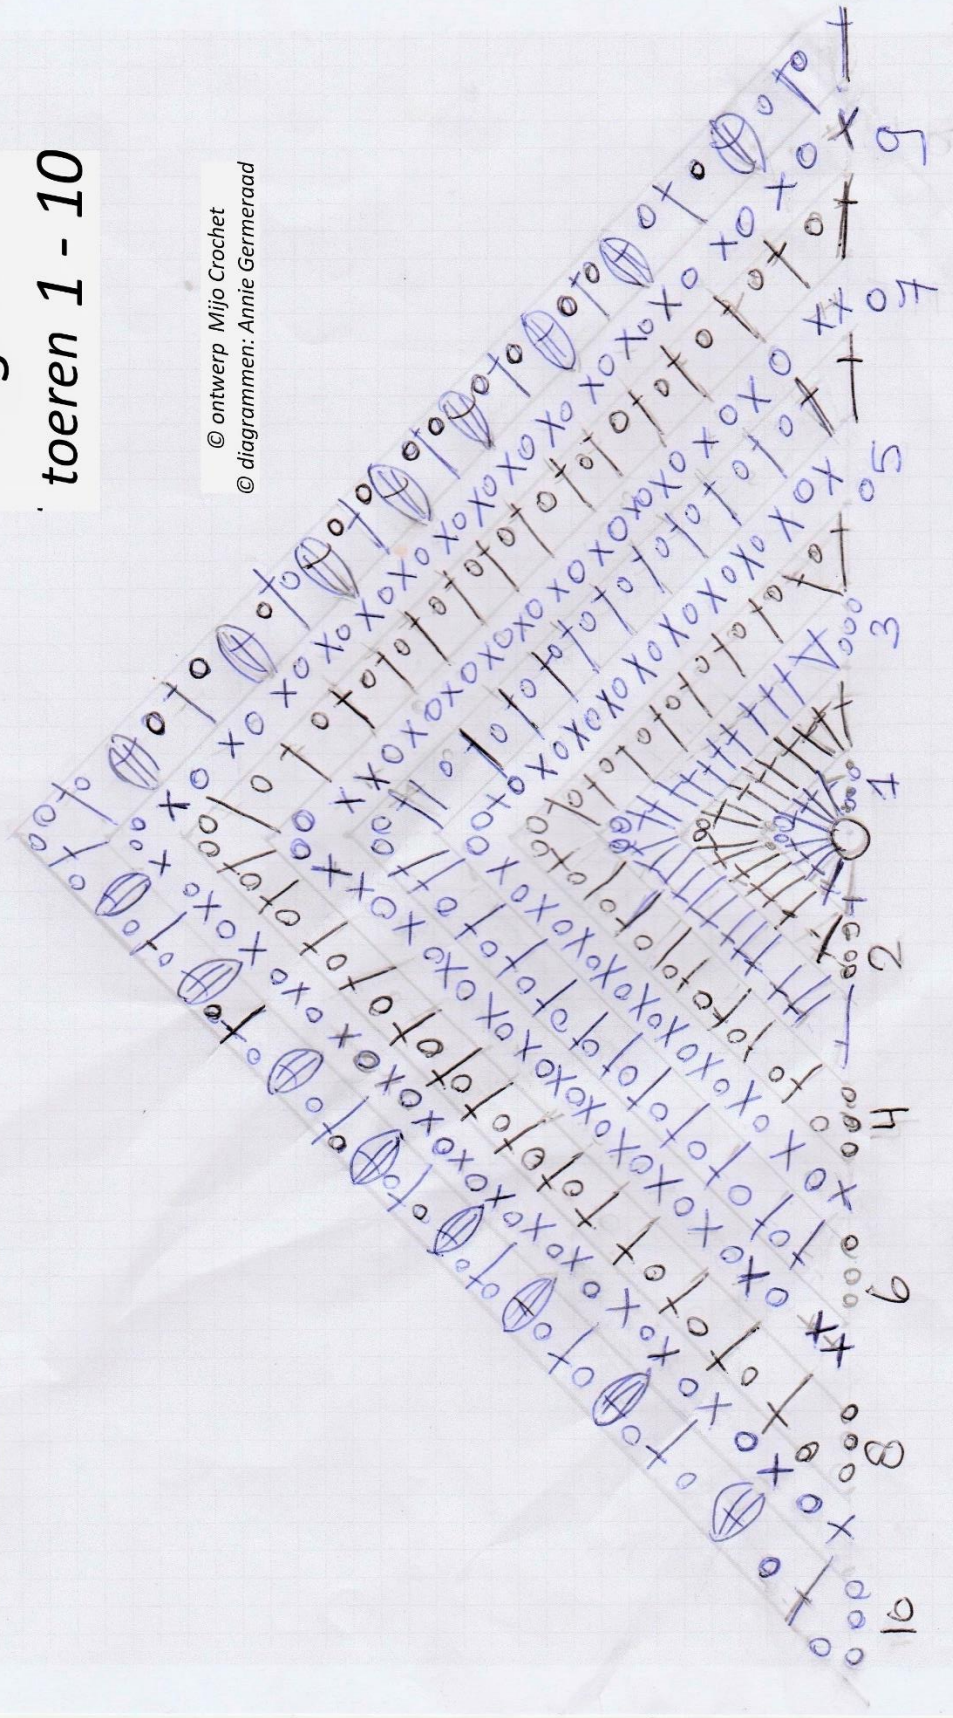 toeren 1 - 10
© ontwerp Mijo Crochet
© diagrammen: Annie Germeraad
1
2
3
4
5
6
7
8
9
10